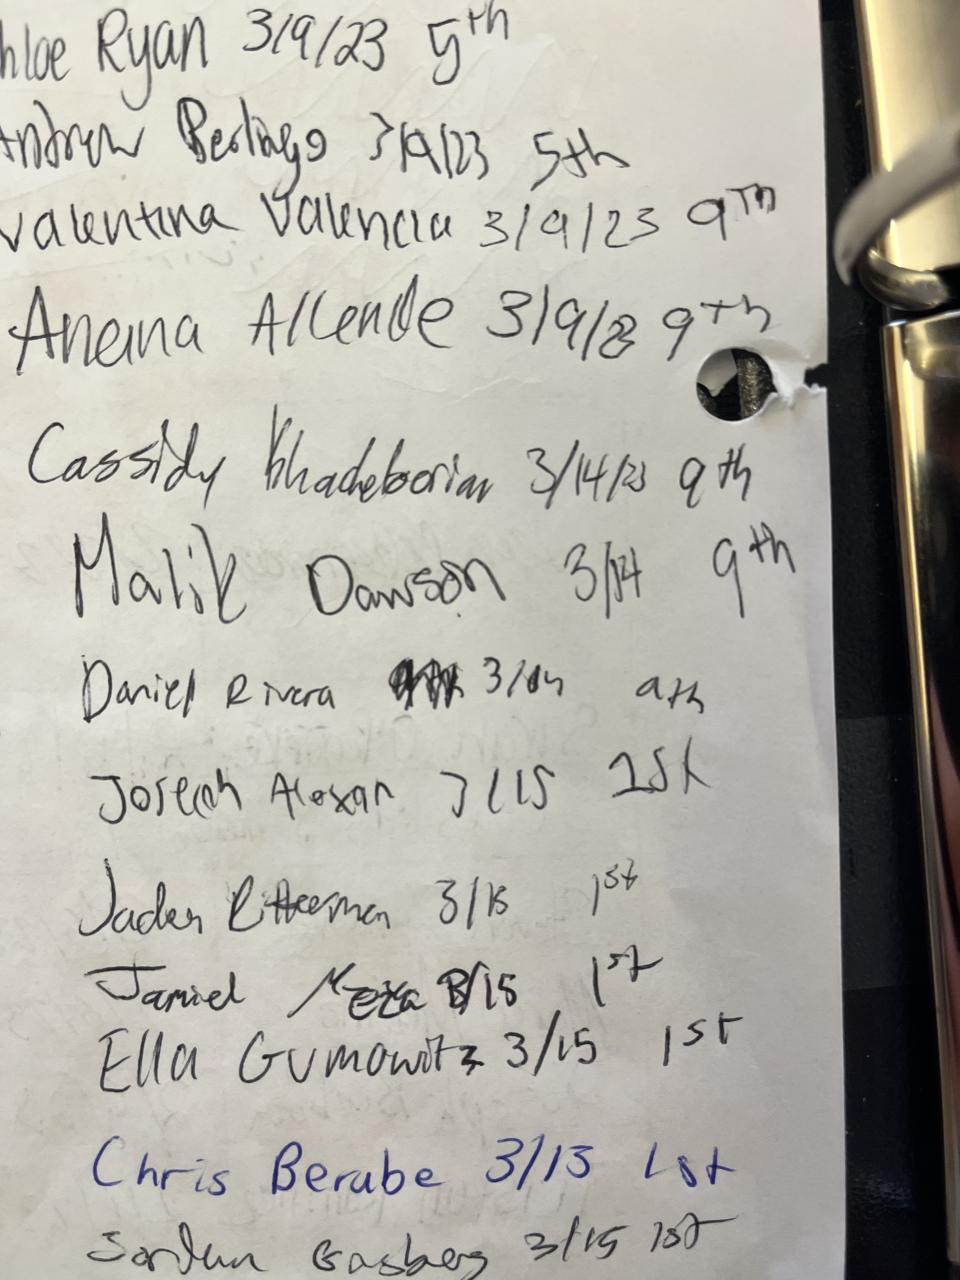 hloe Ryan 3/9/23 5th
Andrew 3/9/23 5th
Valentina Valencia 3/9/23 9th
Allende 3/9/23 9th
Cassidy 3/14/23 9th
Malik Dawson 3/14 9th
Daniel Rivera 3/14 9th
3/15 1st
Jaden Ritterman 3/15 1st
Jamiel Meza 3/15 1st
Ella Gumowitz 3/15 1st
Chris Berube 3/15 1st
Jordan Gasberg 3/15 1st